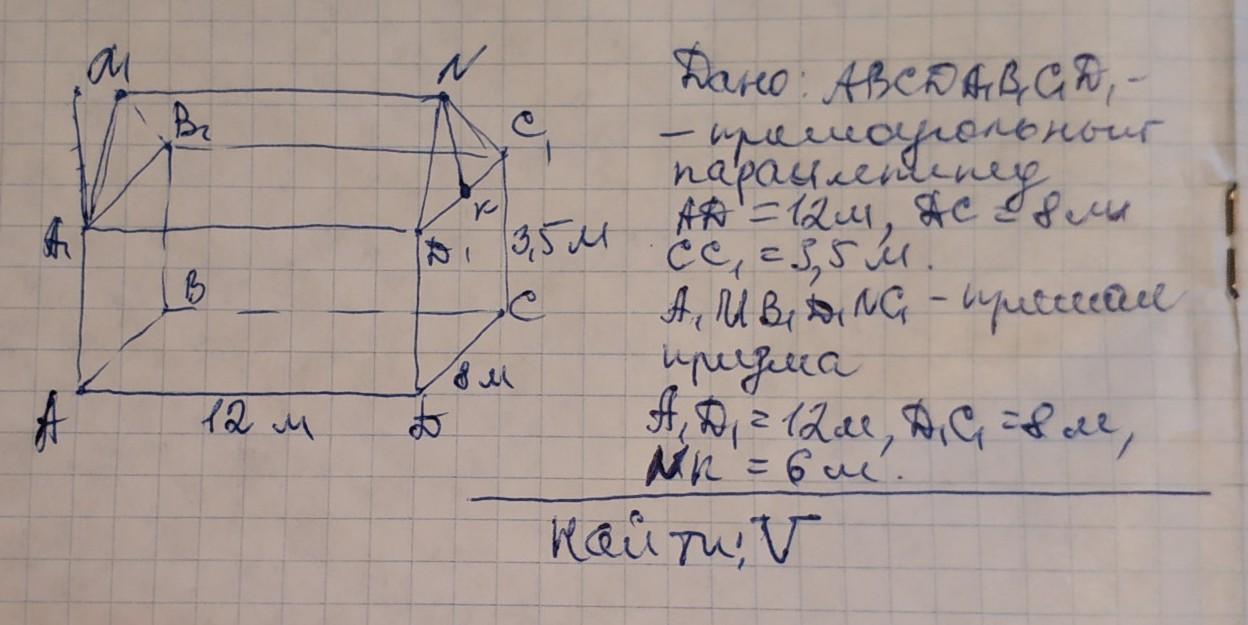 M
N
B₁
C₁
A₁
K
D₁
3,5 м
B
C
8 м
A
12 м
D
Дано: ABCDA₁B₁C₁D₁ -
- прямоугольный
параллепипед
AD = 12 м, DC = 8 м
CC₁ = 3,5 м.
A₁MB₁D₁NC₁ - прямая
призма
A₁D₁ = 12 м, D₁C₁ = 8 м,
NK = 6 м.
Найти: V